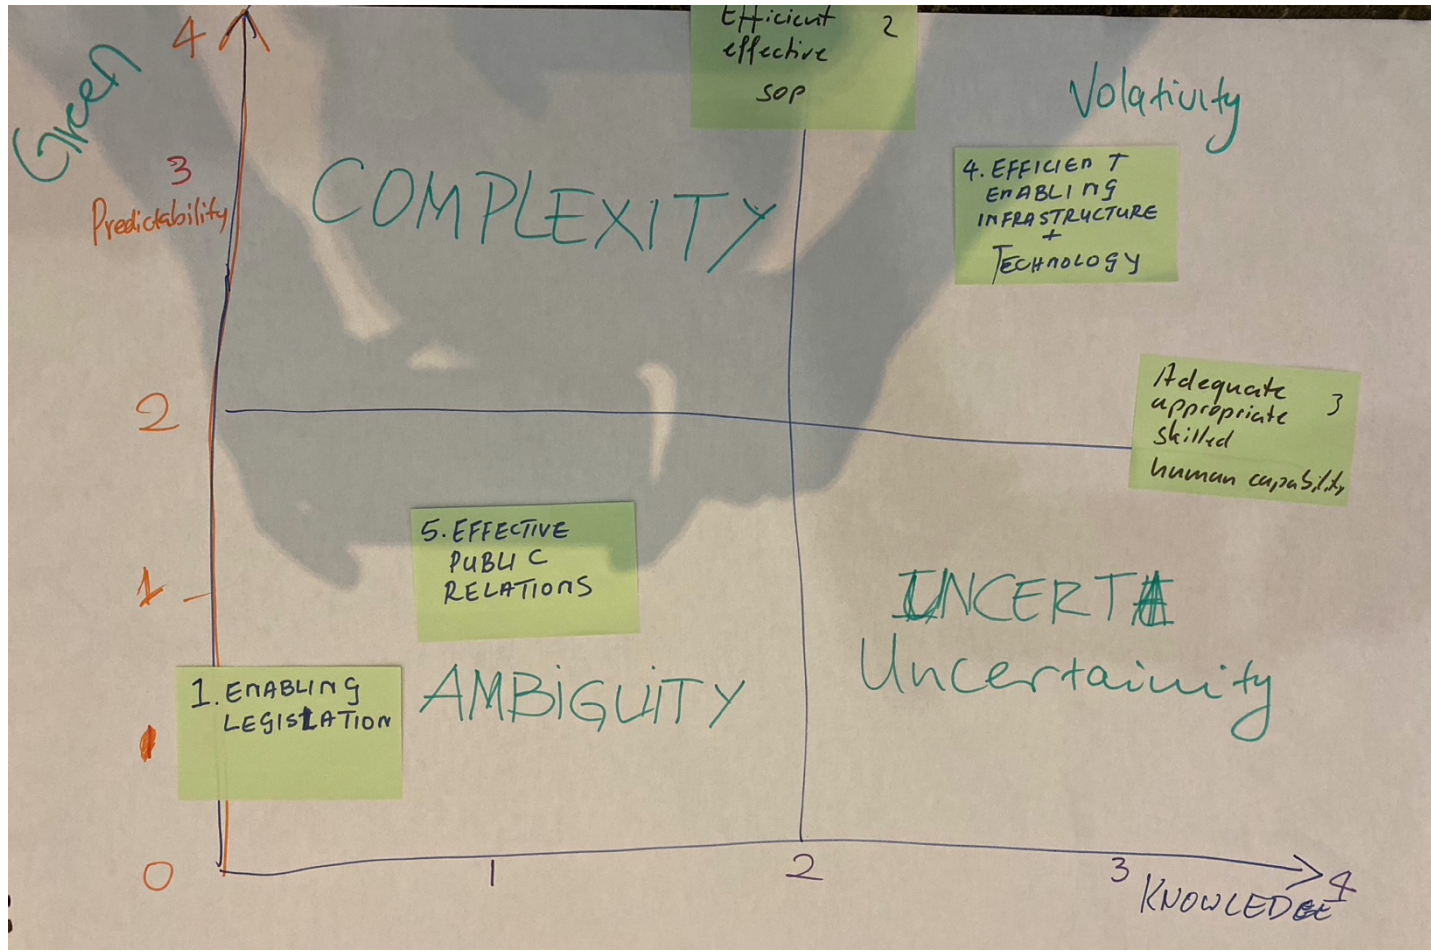 Green
4
3
Predictability
2
1
0
COMPLEXITY
Efficient 2
effective
SOP
Volativity
4. EFFICIENT
ENABLING
INFRASTRUCTURE
+
TECHNOLOGY
Adequate 3
appropriate
skilled
human capability
5. EFFECTIVE
PUBLIC
RELATIONS
1. ENABLING
LEGISLATION
AMBiGUiTY
UNCERTA
Uncertainity
1
2
3
4
KNOWLEDGE